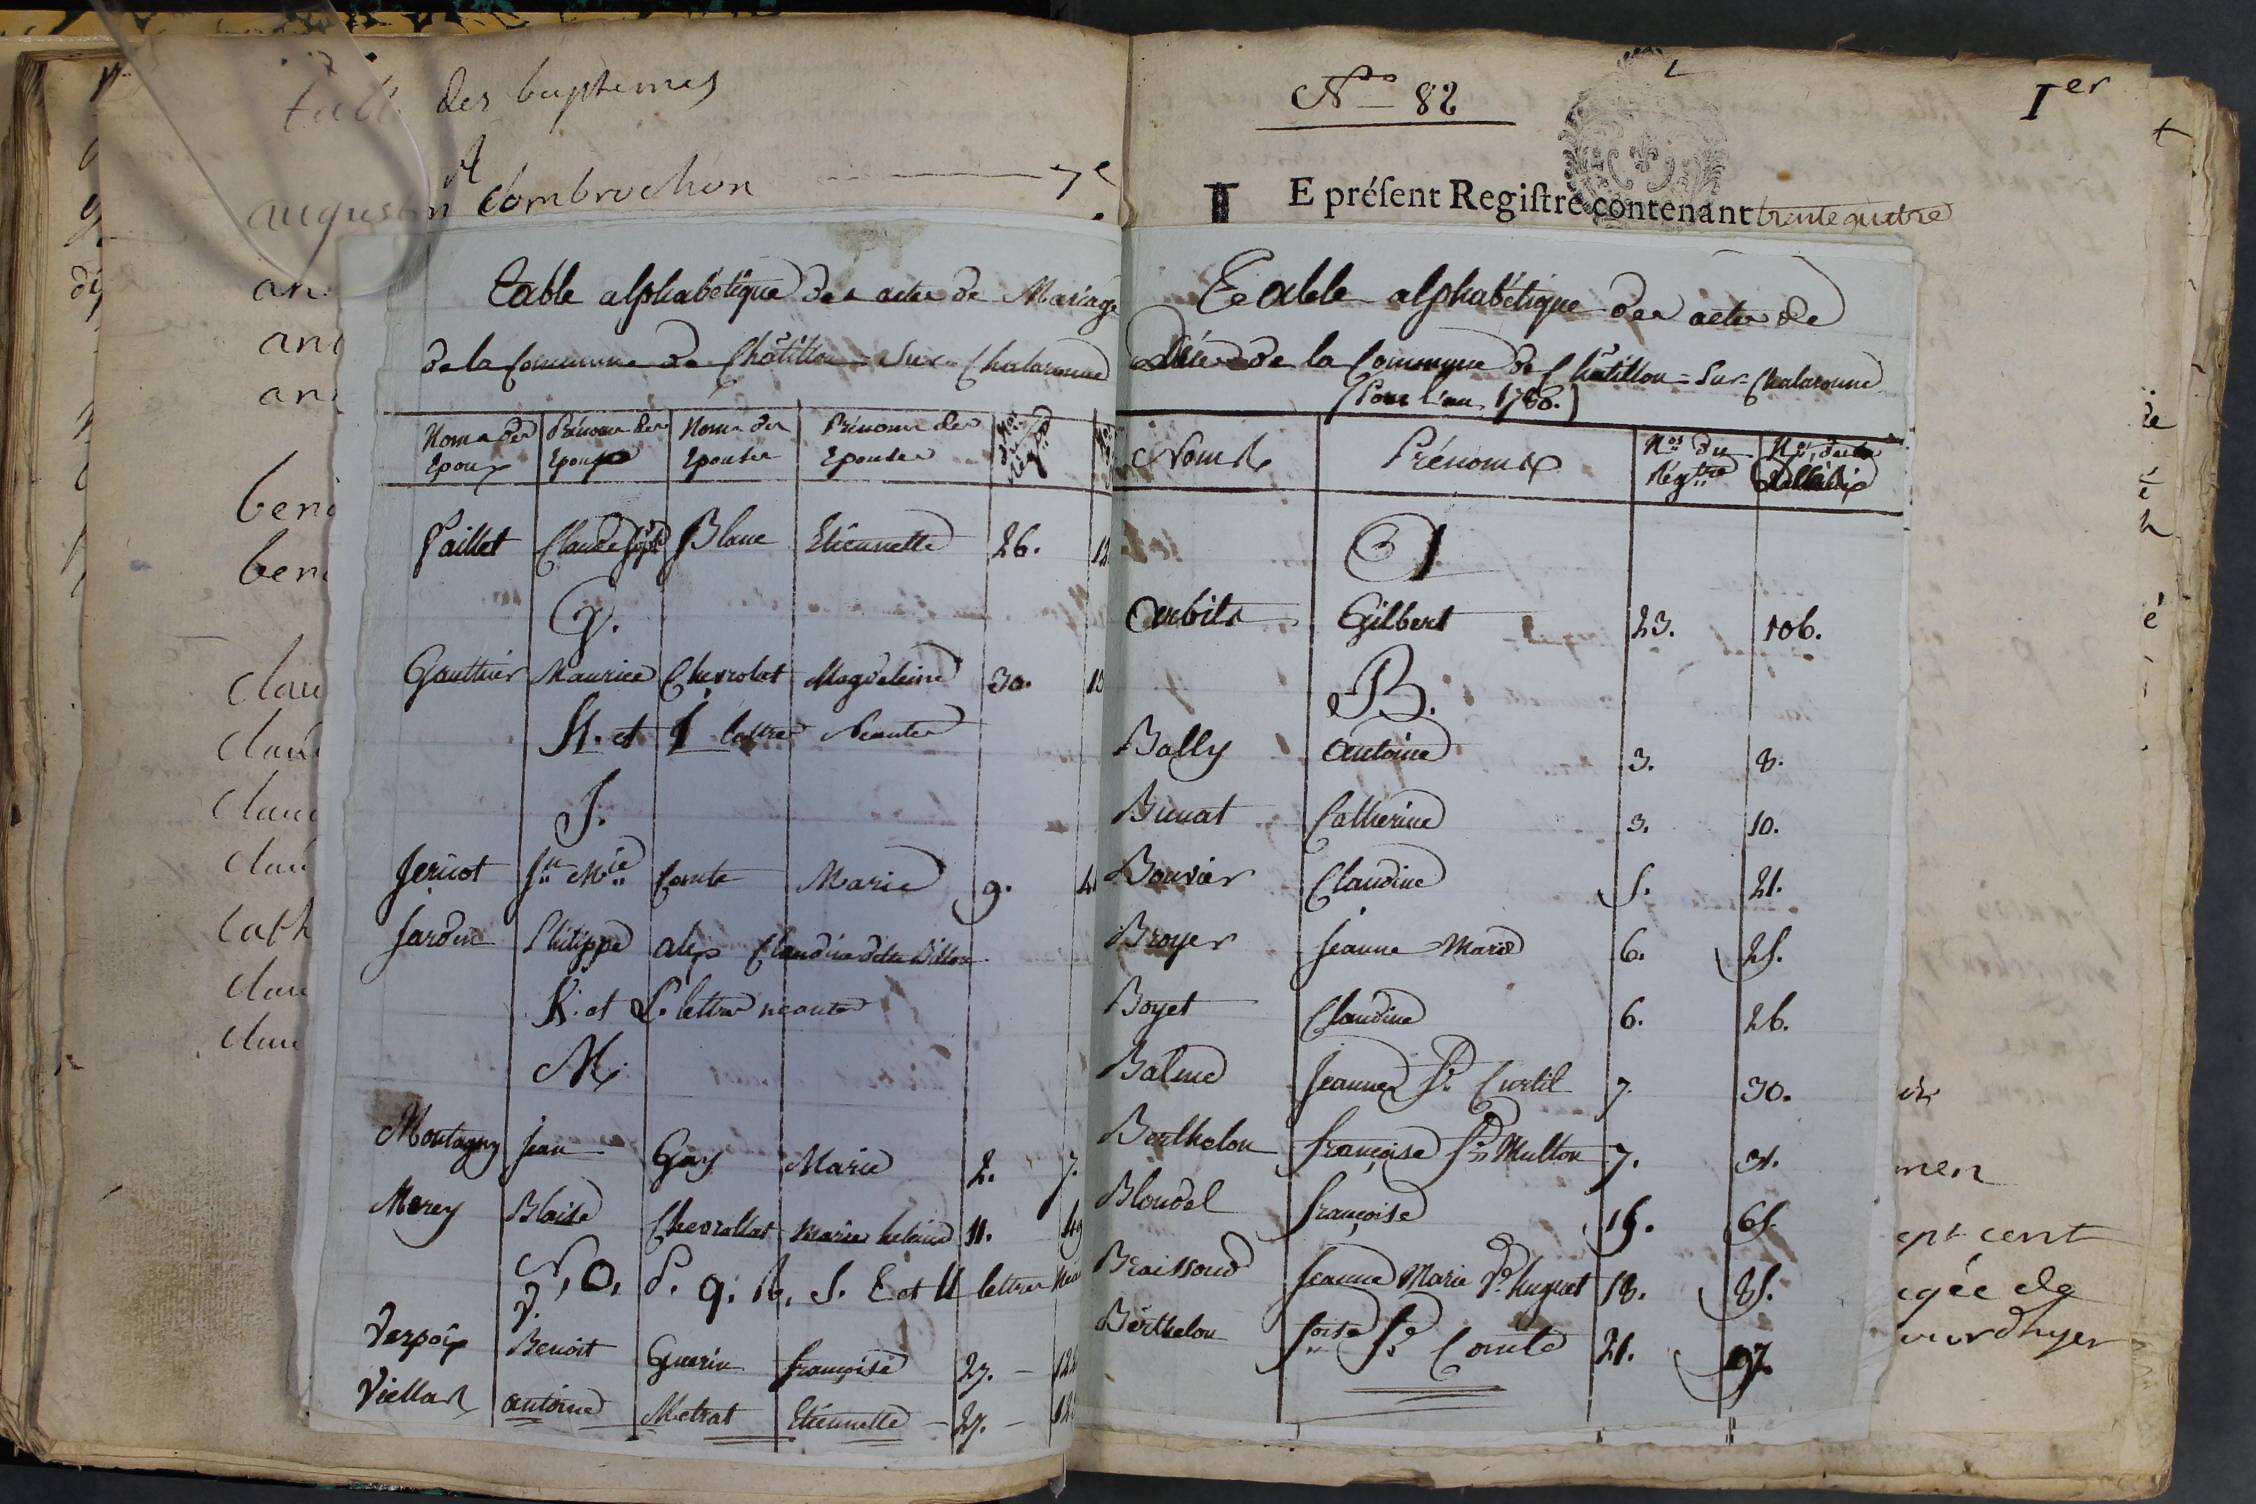 table des baptemes
A
augustin Combrochon 7e
an
ani
an
beni
beni
clau
clau
clau
clau
cath
clau
clau
table alphabétique des actes de Mariage
de la Commune de Châtillon=Sur=Chalaronne
Noms des Epoux Prénoms des Epoux Noms des Epouses Prénoms des Epouses Nos du Régtre
Paillet Claude Blanc Etiennette 26.
G.
Gauthier Maurice Chevrolat Magdeleine 30.
H. et I lettres neantes
J.
Jericot Jn Mie Comte Marie 9.
Jardin Philippe alex Claudine
K. et L. lettres neantes
M.
Montagny Jean Gay Marie 2. 7.
Merey Blaise Chevrollat Marie helaine 11. 49
N, O, P. q. R. S. T et U lettres nea
V.
Verpoix Benoit Guerin françoise 27.
Viellard antoine Metrat Etiennette 27.
No 82
Ier
E préſent Regiſtre contenant trente quatre
Table alphabétique des actes de
décès de la Commune de Châtillon=Sur=Chalaronne
(Pour l'an 1780.)
Noms Prénoms Nos du Régtre Nos des
A
Arbits Gilbert 23. 106.
B.
Bally antoine 3. 8.
Bunat Catherine 3. 10.
Bouvier Claudine 5. 21.
Broyer Jeanne Marie 6. 25.
Boyet Claudine 6. 26.
Balme Jeanne fe Curtil 7. 30.
Berthelon françoise fe Multon 7. 31.
Blondel françoise 15. 65.
Braissoud Jeanne Marie Ve huguet 18. 85.
Berthelon foise fe Comte 21. 97.
men
ept cent
egée de
ourdhyer